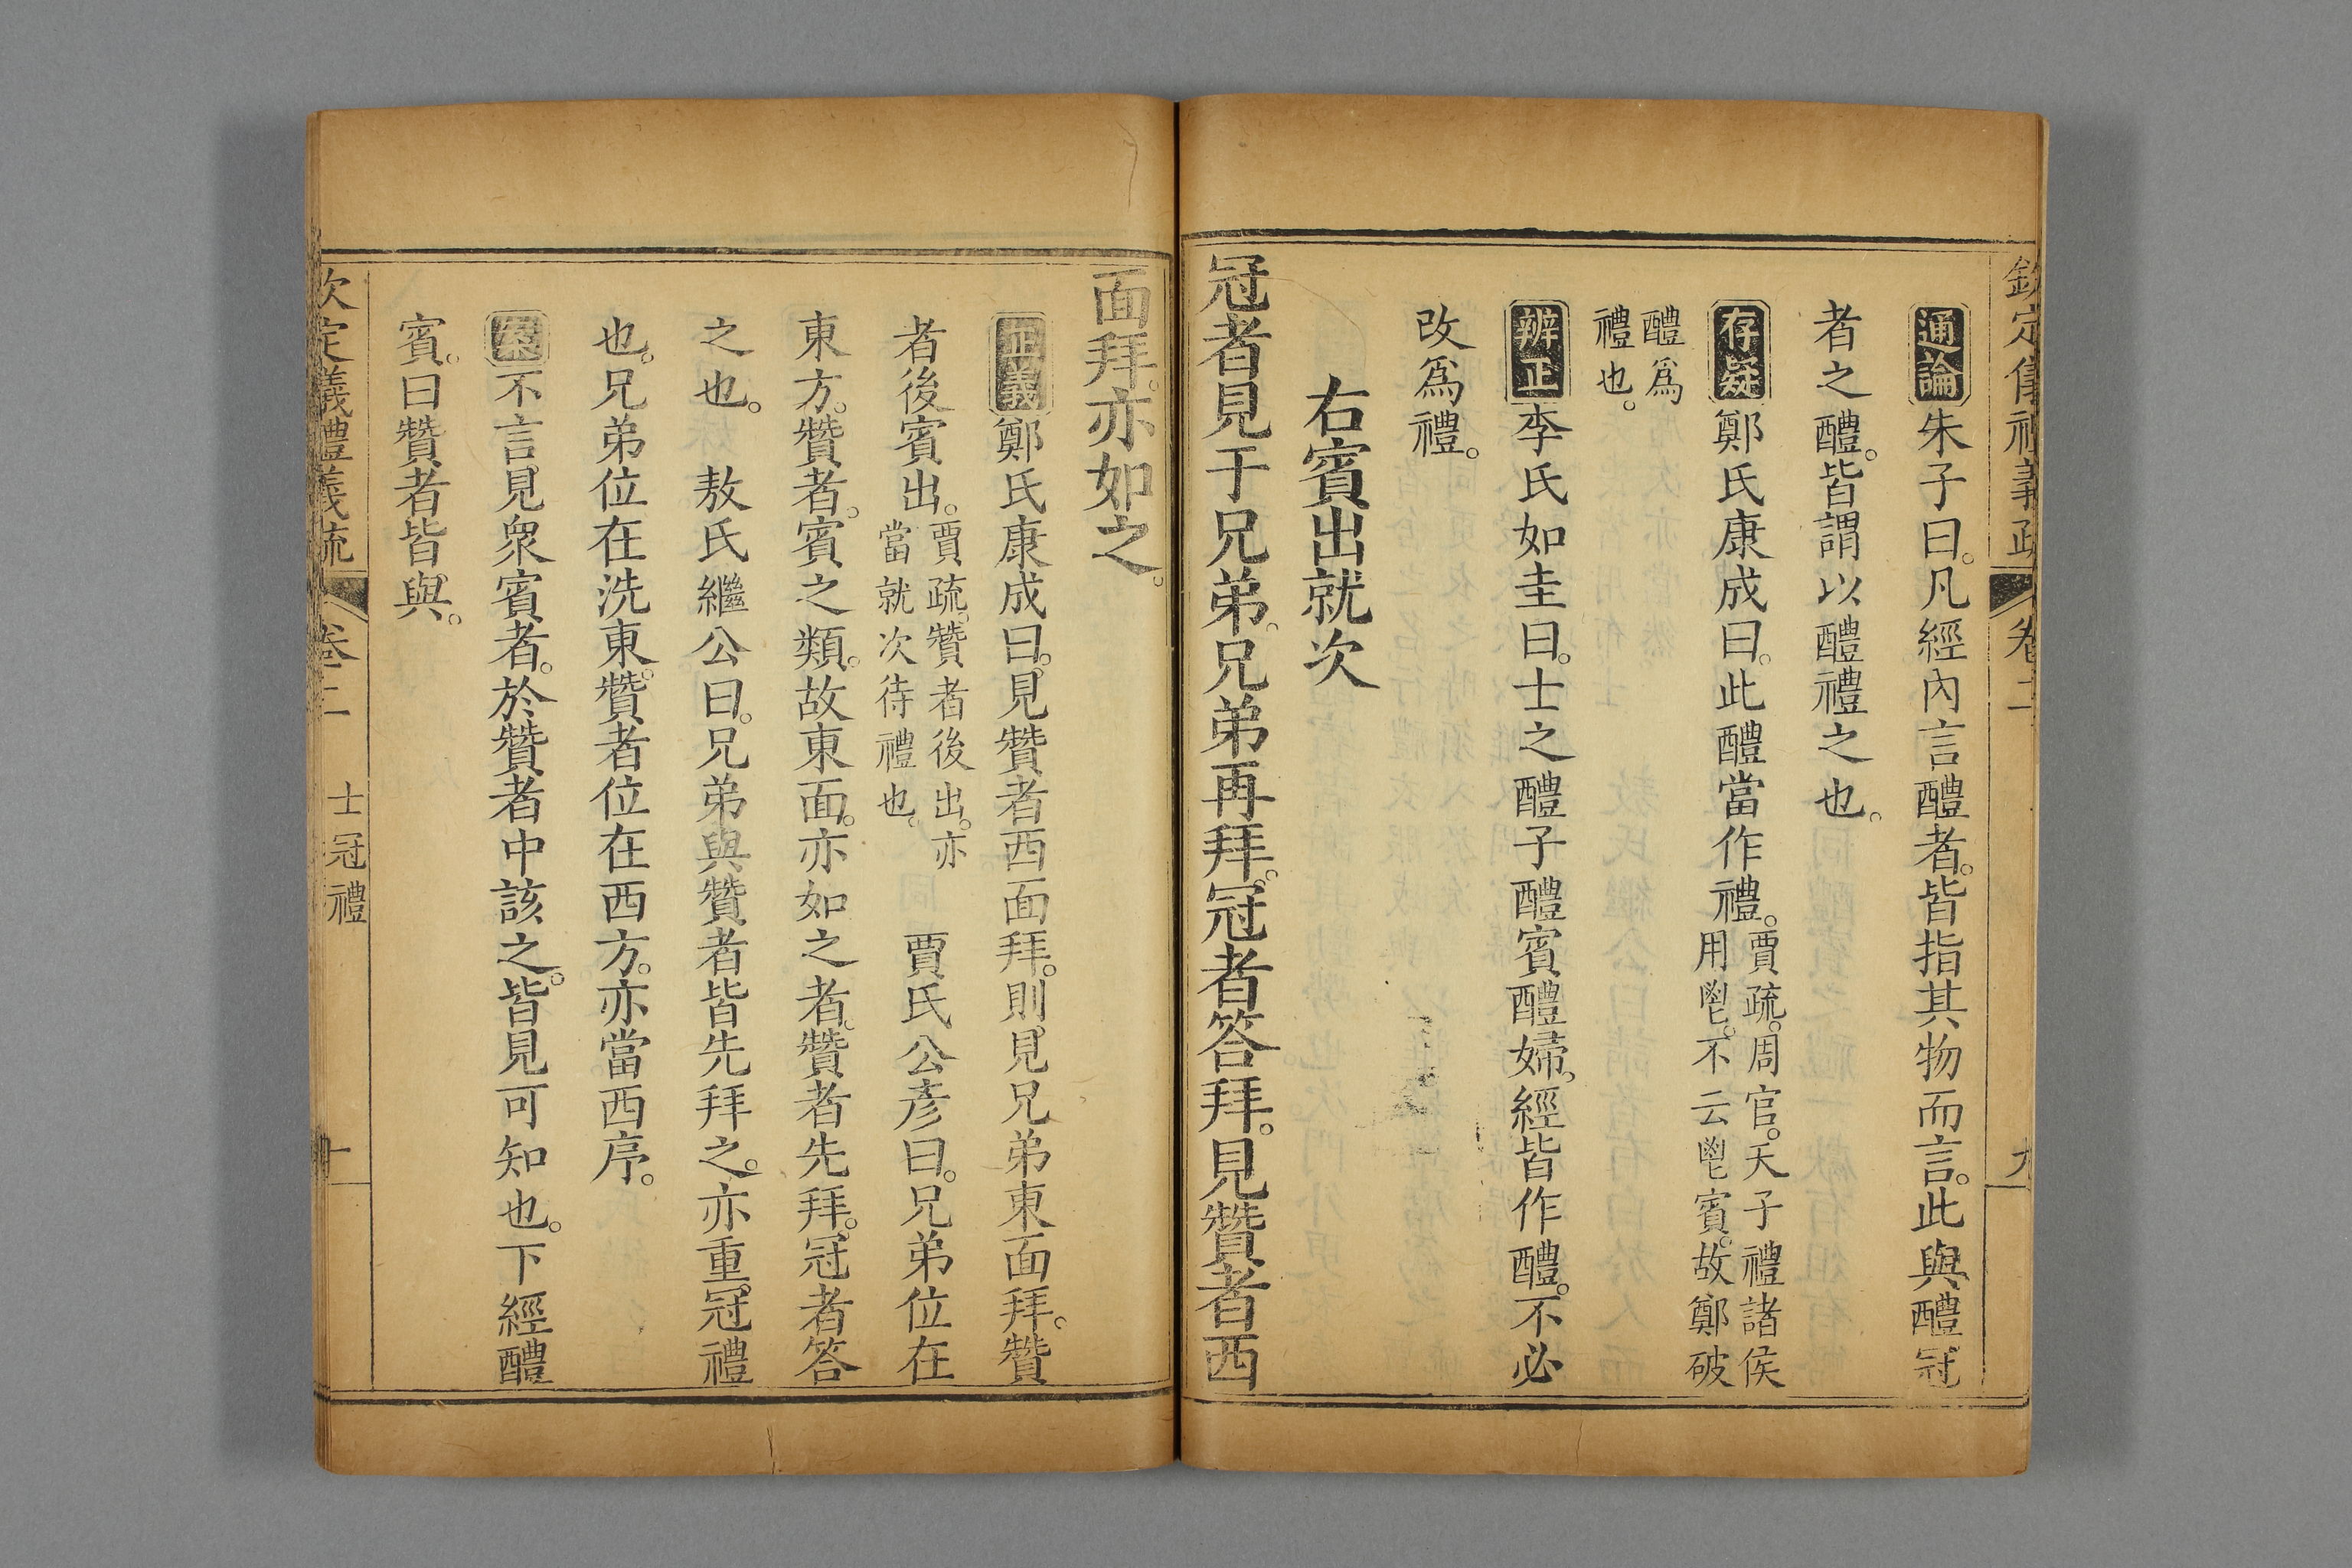 欽定儀禮義疏 卷二 九
通論朱子曰。凡經內言醴者。皆指其物而言。此與醴冠
者之醴。皆謂以醴禮之也。
存疑鄭氏康成曰。此醴當作禮。賈疏。周官。天子禮諸侯
用鬯。不云鬯賓。故鄭破
醴爲
禮也。
辨正李氏如圭曰。士之醴子醴賓醴婦。經皆作醴。不必
改爲禮。
右賓出就次
冠者見于兄弟。兄弟再拜。冠者答拜。見贊者西
面拜。亦如之。
正義鄭氏康成曰。見贊者西面拜。則見兄弟東面拜。贊
者後賓出。賈疏。贊者後出。亦
當就次待禮也。
賈氏公彥曰。兄弟位在
東方。贊者。賓之類。故東面。亦如之者。贊者先拜。冠者答
之也。 敖氏繼公曰。兄弟與贊者皆先拜之。亦重冠禮
也。兄弟位在洗東。贊者位在西方。亦當西序。
案不言見衆賓者。於贊者中該之。皆見可知也。下經醴
賓。曰贊者皆與。
欽定儀禮義疏 卷二 士冠禮 十